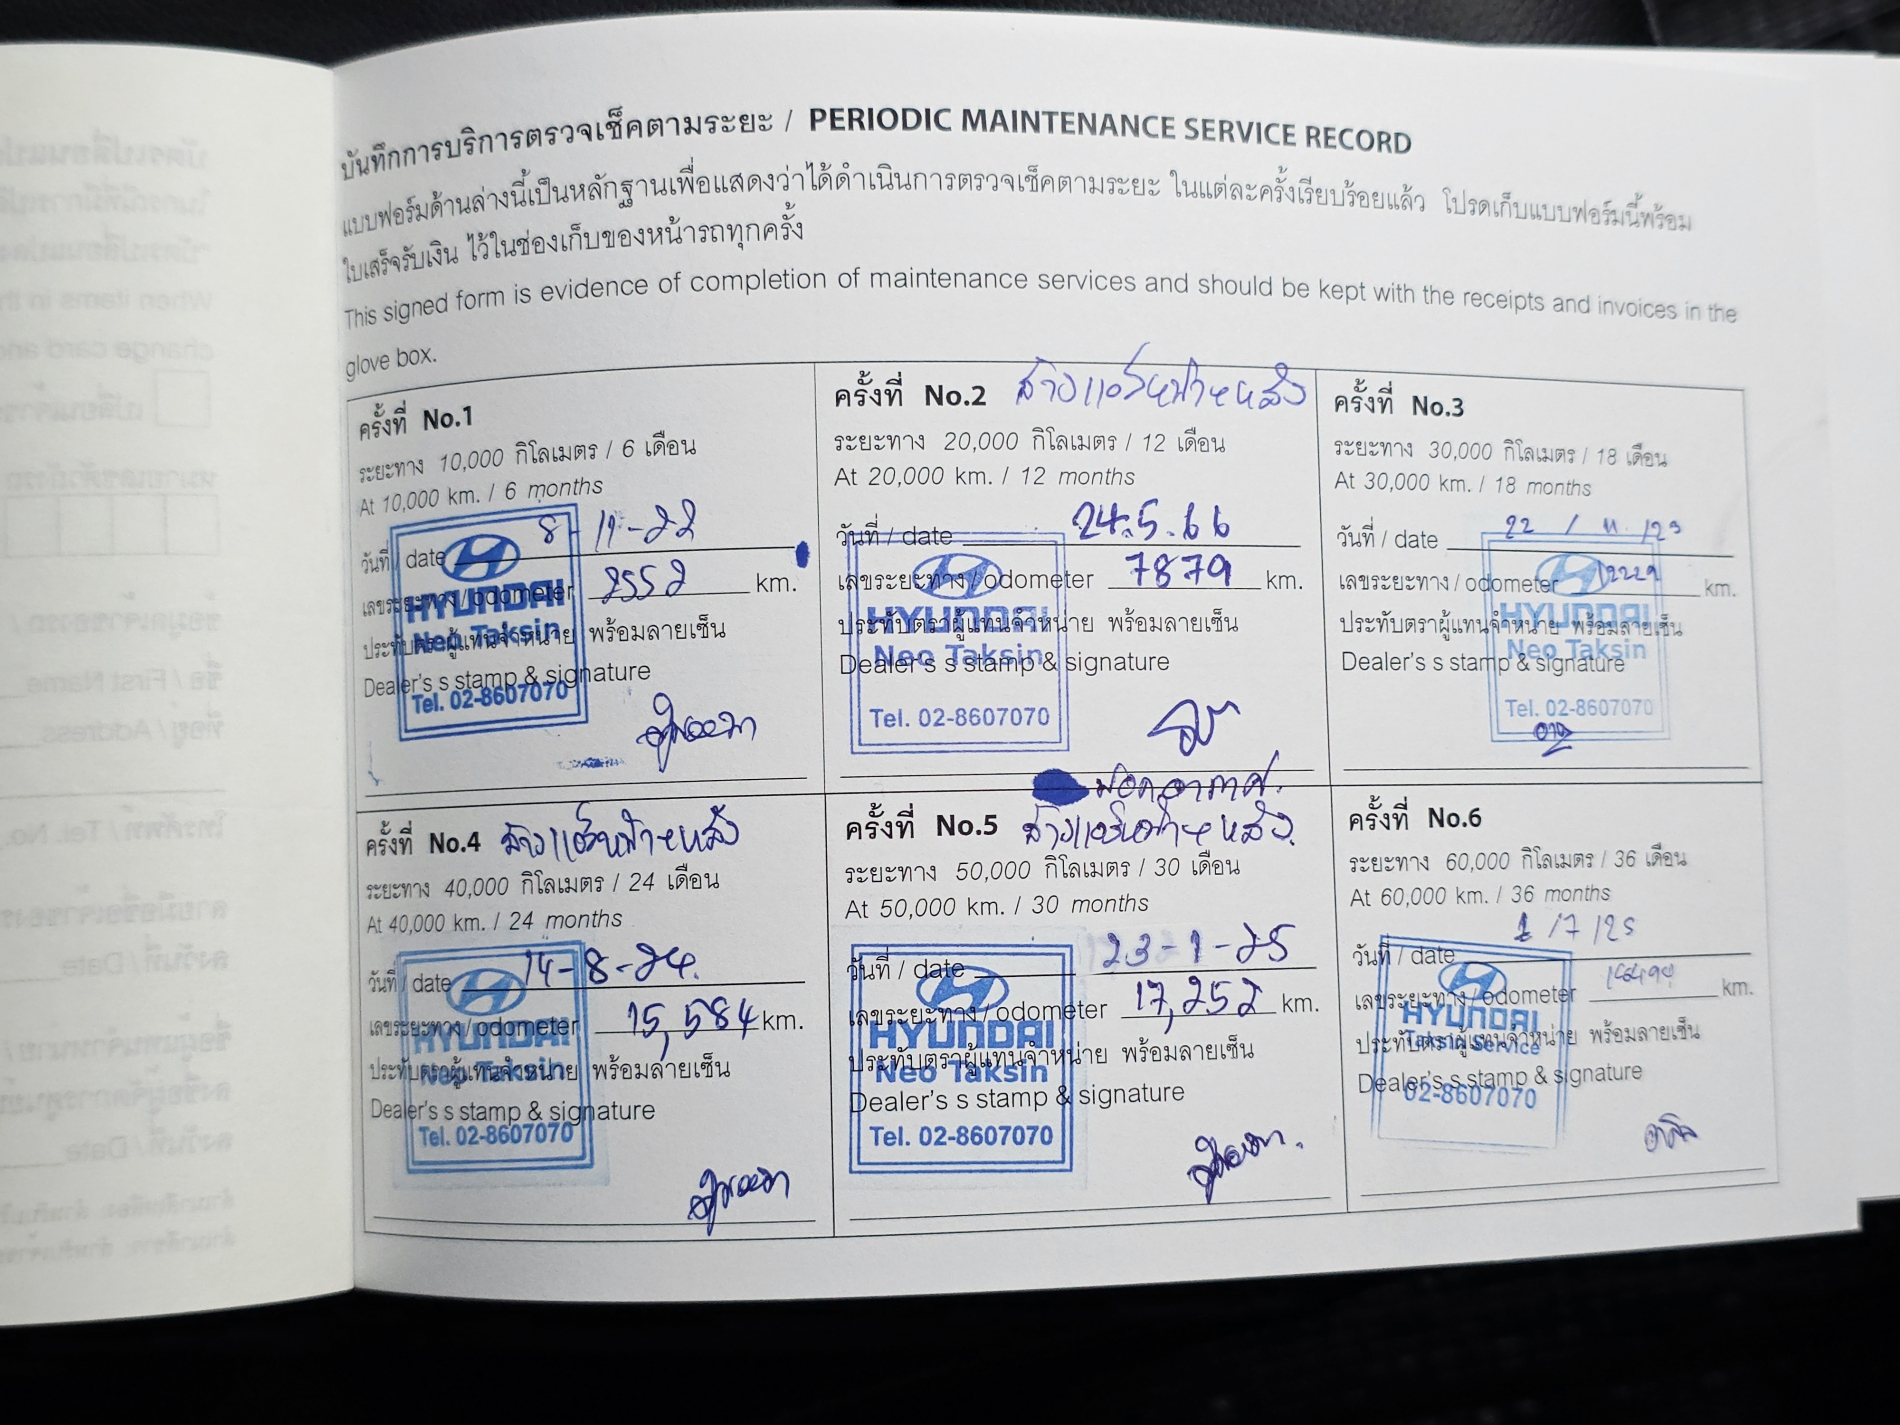 บันทึกการบริการตรวจเช็คตามระยะ / PERIODIC MAINTENANCE SERVICE RECORD
แบบฟอร์มด้านล่างนี้เป็นหลักฐานเพื่อแสดงว่าได้ดำเนินการตรวจเช็คตามระยะ ในแต่ละครั้งเรียบร้อยแล้ว โปรดเก็บแบบฟอร์มนี้พร้อม
ใบเสร็จรับเงิน ไว้ในช่องเก็บของหน้ารถทุกครั้ง
This signed form is evidence of completion of maintenance services and should be kept with the receipts and invoices in the
glove box.
ครั้งที่ No.1
ระยะทาง 10,000 กิโลเมตร / 6 เดือน
At 10,000 km. / 6 months
วันที่ / date 8-11-22
เลขระยะทาง / odometer 2552 km.
ประทับตราผู้แทนจำหน่าย พร้อมลายเซ็น
Dealer's s stamp & signature
HYUNDAI
Neo Taksin
Tel. 02-8607070
ครั้งที่ No.2 ล้างแอร์หน้า+หลัง
ระยะทาง 20,000 กิโลเมตร / 12 เดือน
At 20,000 km. / 12 months
วันที่ / date 24.5.66
เลขระยะทาง / odometer 7879 km.
ประทับตราผู้แทนจำหน่าย พร้อมลายเซ็น
Dealer's s stamp & signature
HYUNDAI
Neo Taksin
Tel. 02-8607070
ครั้งที่ No.3
ระยะทาง 30,000 กิโลเมตร / 18 เดือน
At 30,000 km. / 18 months
วันที่ / date 22 / 11 / 23
เลขระยะทาง / odometer 12229 km.
ประทับตราผู้แทนจำหน่าย พร้อมลายเซ็น
Dealer's s stamp & signature
HYUNDAI
Neo Taksin
Tel. 02-8607070
ครั้งที่ No.4 ล้างแอร์หน้า+หลัง
ระยะทาง 40,000 กิโลเมตร / 24 เดือน
At 40,000 km. / 24 months
วันที่ / date 14-8-24.
เลขระยะทาง / odometer 15,584 km.
ประทับตราผู้แทนจำหน่าย พร้อมลายเซ็น
Dealer's s stamp & signature
HYUNDAI
Neo Taksin
Tel. 02-8607070
ครั้งที่ No.5 ล้างแอร์หน้า+หลัง.
ระยะทาง 50,000 กิโลเมตร / 30 เดือน
At 50,000 km. / 30 months
วันที่ / date 23-1-25
เลขระยะทาง / odometer 17,252 km.
ประทับตราผู้แทนจำหน่าย พร้อมลายเซ็น
Dealer's s stamp & signature
HYUNDAI
Neo Taksin
Tel. 02-8607070
ครั้งที่ No.6
ระยะทาง 60,000 กิโลเมตร / 36 เดือน
At 60,000 km. / 36 months
วันที่ / date 1/7/25
เลขระยะทาง / odometer km.
ประทับตราผู้แทนจำหน่าย พร้อมลายเซ็น
Dealer's s stamp & signature
HYUNDAI
Taksin Service
02-8607070